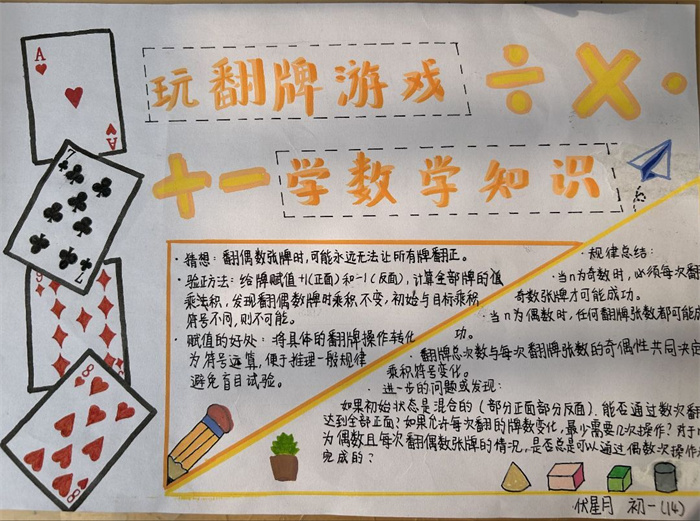 玩翻牌游戏
÷ × ·
+ - 学数学知识
A
A
7
7
8
8
·猜想：翻偶数张牌时，可能永远无法让所有牌翻正。
·验正方法：给牌赋值+1(正面)和-1(反面)，计算全部牌的值
乘法积，发现翻偶数牌时乘积不变，初始与目标乘积
符号不同，则不可能。
·赋值的好处：将具体的翻牌操作转化
为符号运算，便于推理一般规律
避免盲目试验。
·规律总结：
·当n为奇数时，必须每次翻
奇数张牌才可能成功。
·当n为偶数时，任何翻牌张数都可能成
功。
·翻牌总次数与每次翻牌张数的奇偶性共同决定
乘积符号变化。
·进一步的问题或发现：
如果初始状态是混合的（部分正面部分反面），能否通过数次翻
达到全部正面？如果允许每次翻的牌数变化，最少需要几次操作？对于
为偶数且每次翻偶数张牌的情况，是否总是可以通过偶数次操作
完成的？
伏星月 初一(14)